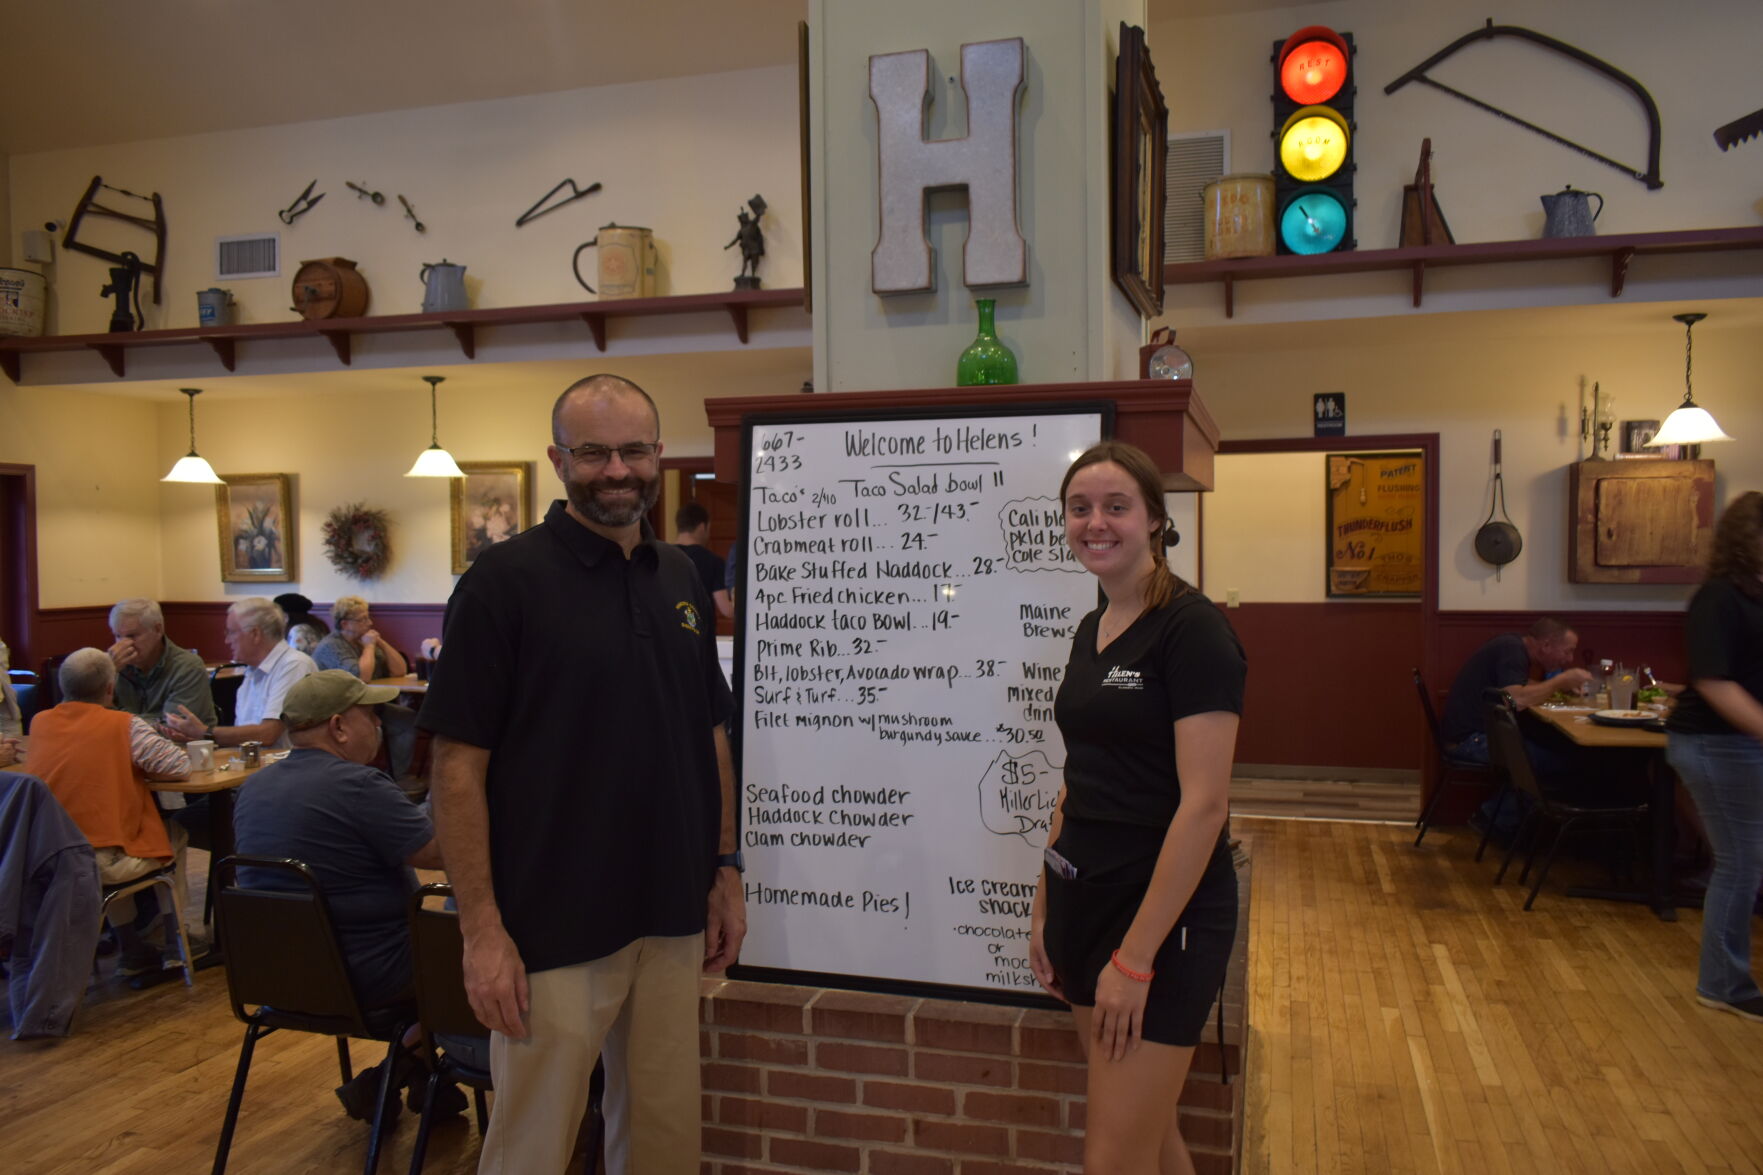 H
REST
ROOM
667-
2433
Welcome to Helens!
Taco's 2/$10 Taco Salad Bowl 11
Lobster roll... 32-/43.-
Crabmeat roll... 24.-
Bake Stuffed Haddock... 28.-
4pc. Fried chicken... 17.-
Haddock taco Bowl... 19.-
Prime Rib... 32.-
Blt, lobster, Avocado wrap... 38.-
Surf & Turf... 35.-
Filet mignon w/ mushroom
burgundy sauce... $30.50
Cali ble
pkld be
Cole sla
Maine
Brews
Wine
mixed
drin
$5-
Miller Li
Draf
Seafood chowder
Haddock Chowder
Clam chowder
Homemade Pies!
Ice cream
shack
·chocolate
or
moc
milksh
HELEN'S
RESTAURANT
RESTROOM
PATENT
FLUSHING
THUNDERFLUSH
No. 1
THOS
CRAPPER